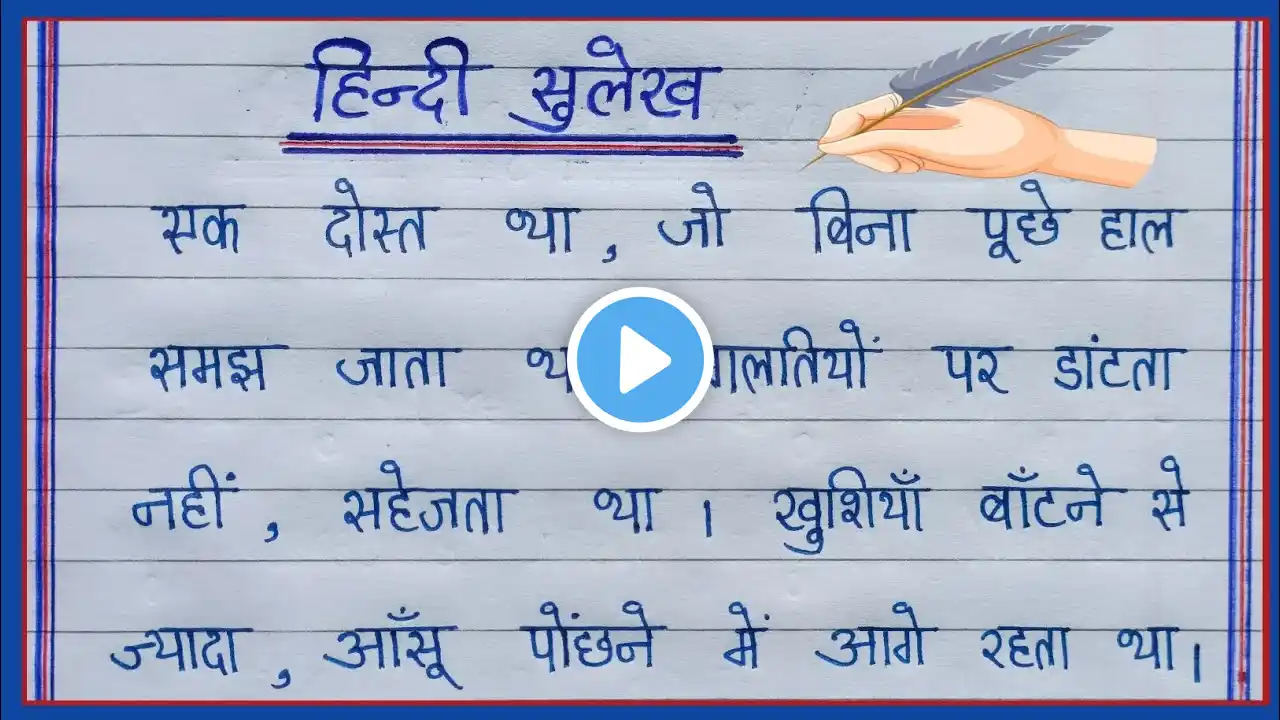 हिन्दी सुलेख
एक दोस्त था, जो बिना पूछे हाल
समझ जाता गलतियों पर डांटता
नहीं, सहेजता था । खुशियाँ बाँटने से
ज्यादा, आँसू पोंछने में आगे रहता था।